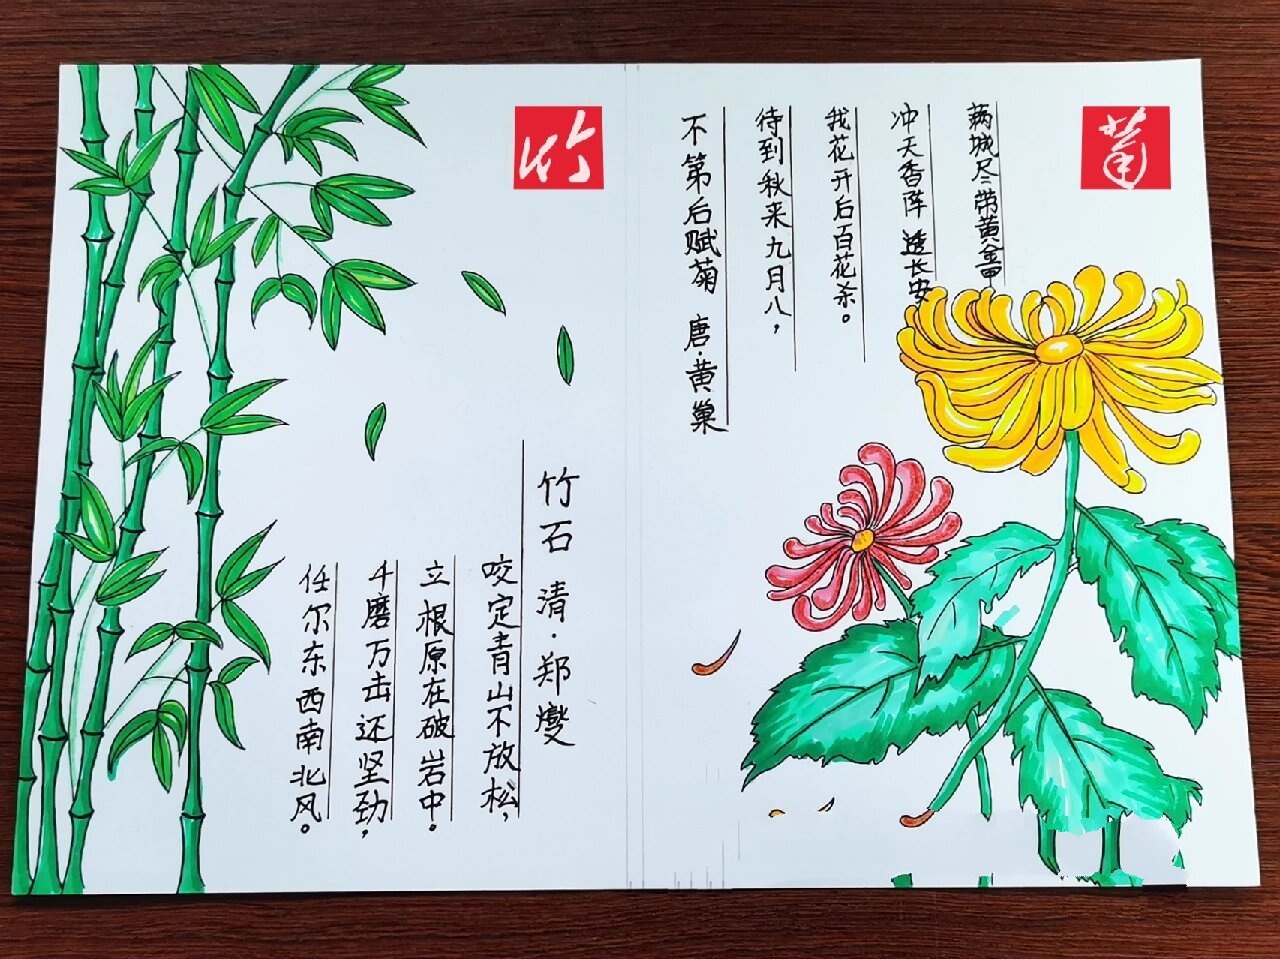 竹
竹石 清·郑燮
咬定青山不放松，
立根原在破岩中。
千磨万击还坚劲，
任尔东西南北风。
菊
不第后赋菊 唐·黄巢
待到秋来九月八，
我花开后百花杀。
冲天香阵透长安
满城尽带黄金甲